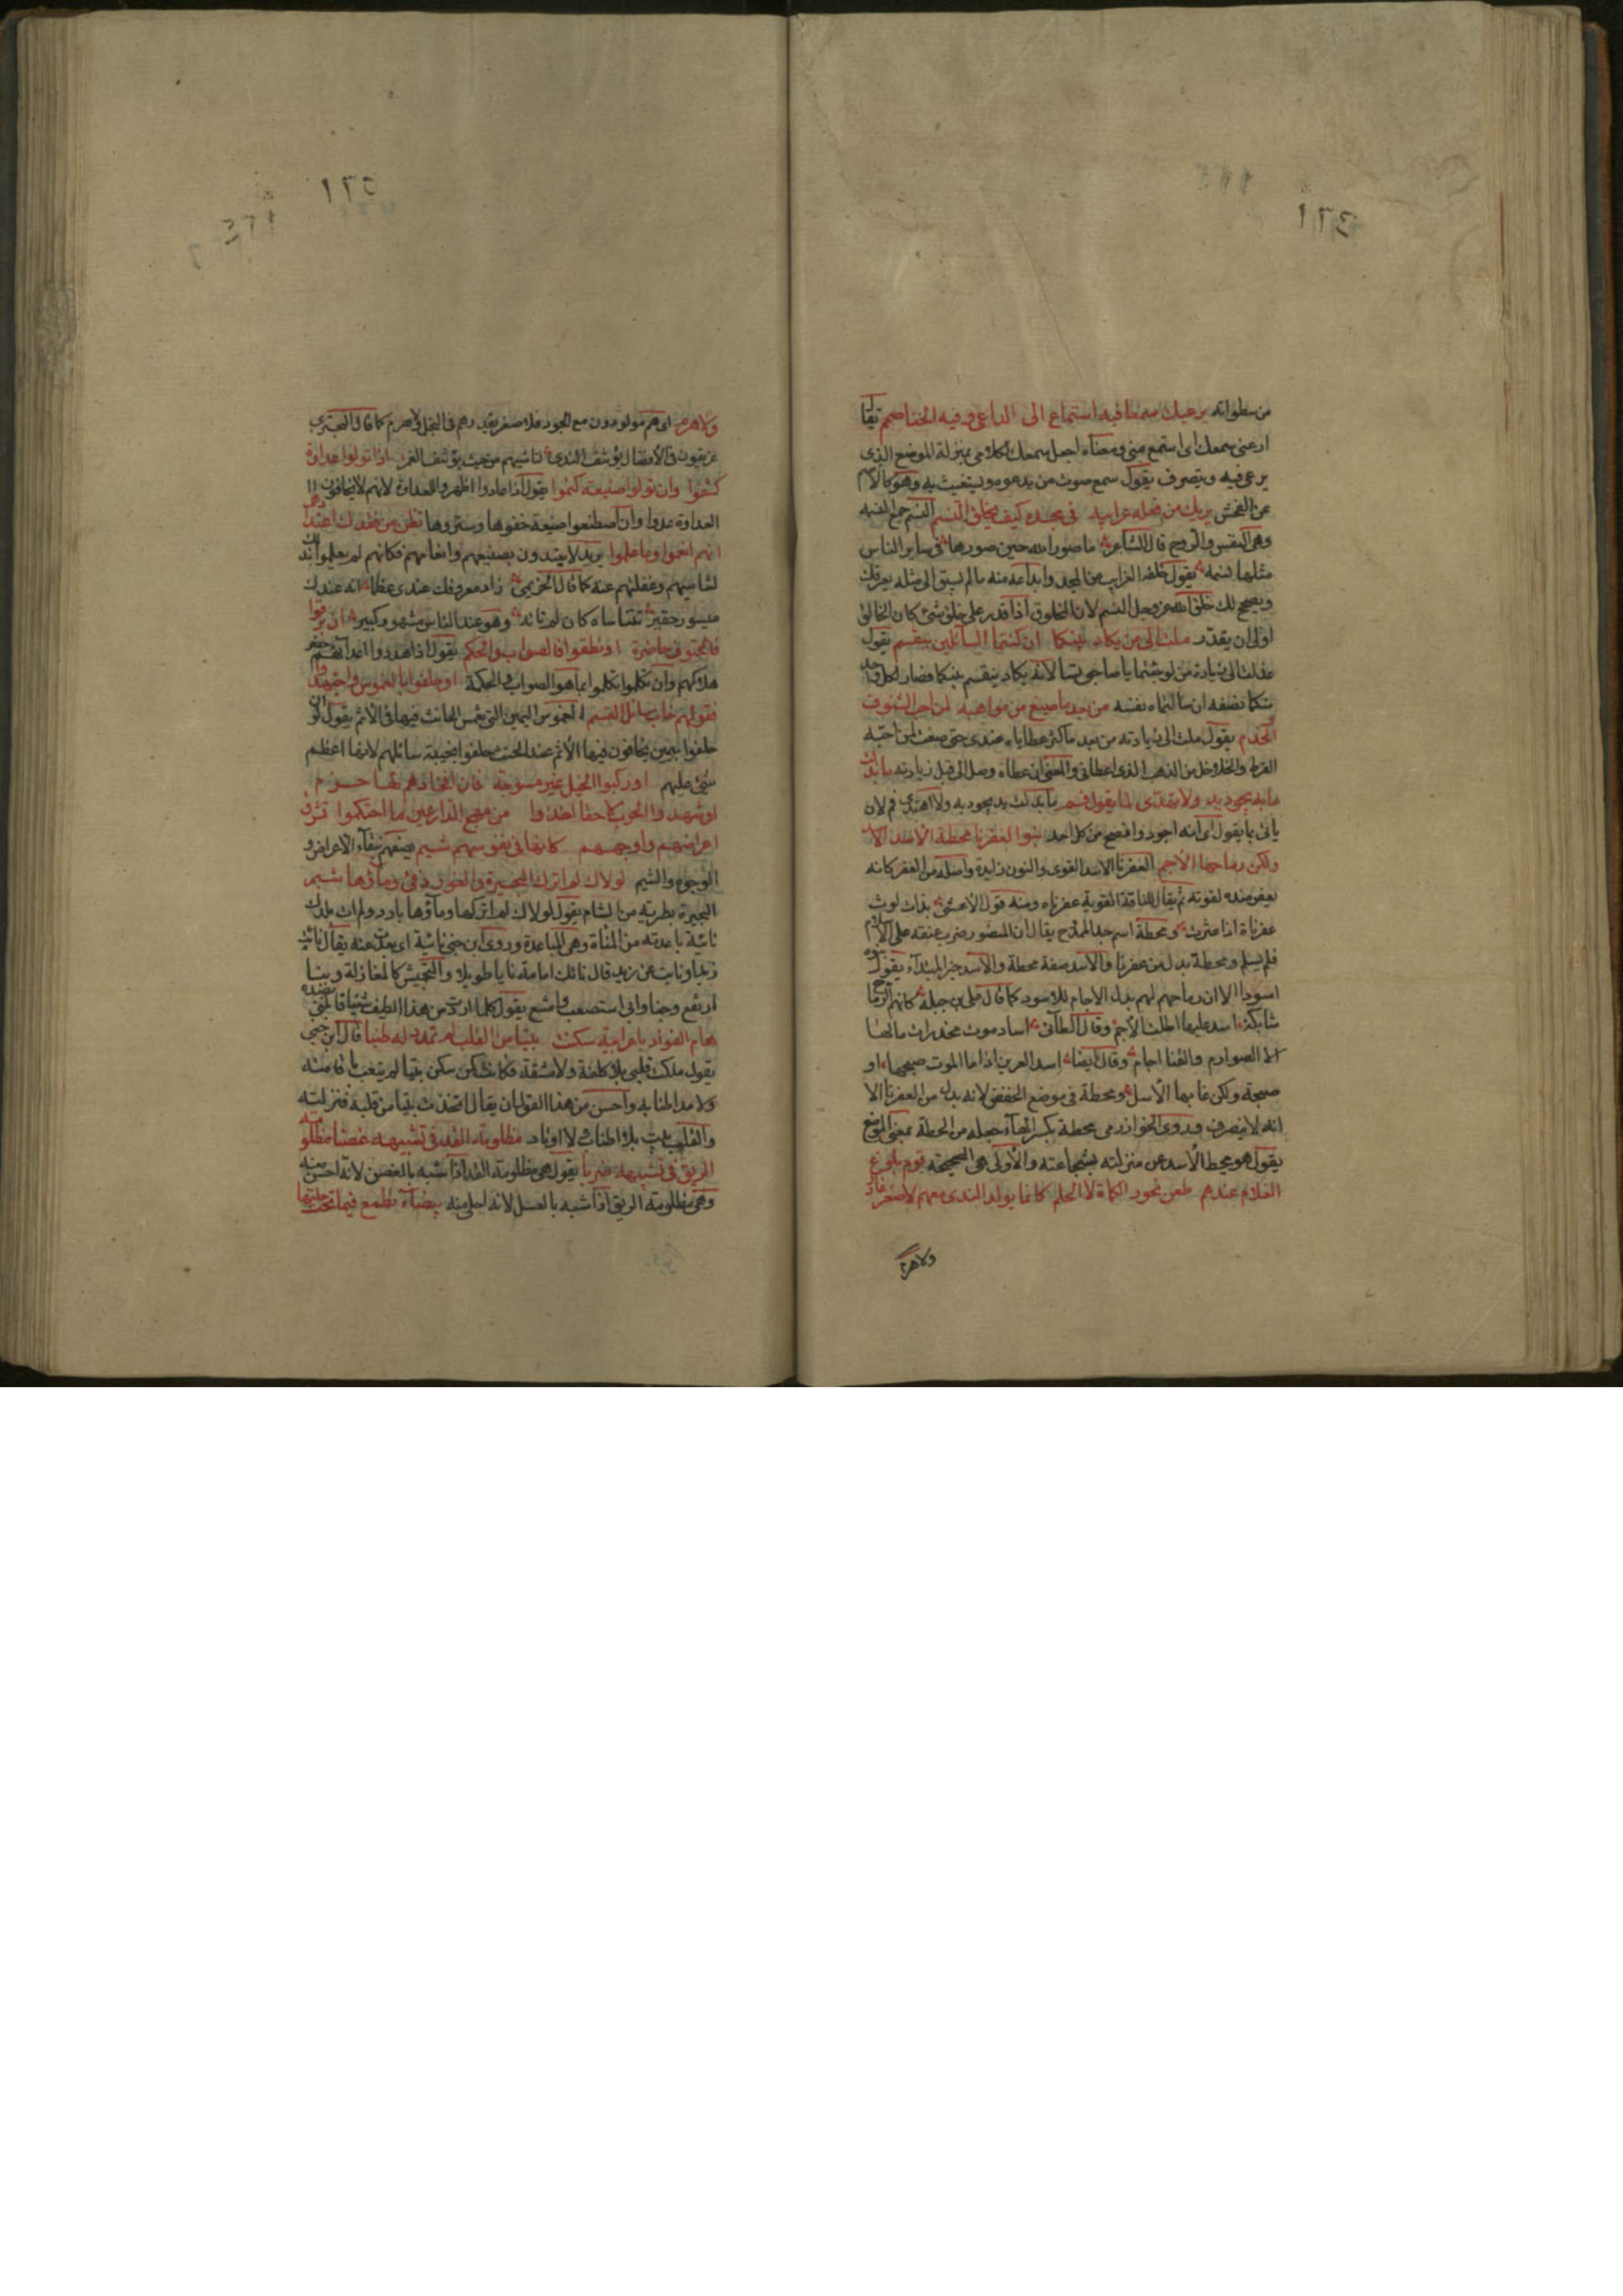 من سطواته يرعيك سمعا فيه استماع الى الداعى وفيه الخنا صمم يقال
ارعنى سمعك اى استمع منى ومعناه اجعل سمعك لكلامى بمنزلة الموضع الذى
يرعى فيه ويتصرف يقول سمع صوت من يدعوه ويستغيث به وهو كالأصم
عن الفحش يريك من خلقه غرايبه فى مجده كيف يخلق النسم النسم جمع النسمة
وهى النفس والروح قال الشاعر ما صور الله حين صورها فى ساير الناس
مثلها نسمه يقول خلقه الغرايب من المجد وابداعه منه ما لم يسبق الى مثله يعرفك
ويصحح لك خلق الله عز وجل النسم لان المخلوق اذا قدر على خلق شئ كان الخالق
اولى ان يقدر ملت الى من يكاد بينكما ان كنتما السائلين ينقسم يقول
عدلت الى زيارة من لو جئتما يا صاحبى تسألانه يكاد ينقسم بينكما فصار لكل واحد
منكما نصفه ان سالتماه نفسه من بعد ما صيغ من مواهبه لمن احب الشنوف
والخدم يقول ملت الى زيارته من بعد ما كثر عطاياه عندى حتى صغت لمن احبه
القرط والخلاخل من الذهب الذى اعطانى والمعنى ان عطاه وصل الى قبل زيارته ما بذلت
ما به يجود يد ولا تهدى لما يقول فم ما بذلت يد يجود به ولا اهتدى فم لان
ياتى بما يقول اى انه اجود وافصح من كل احد بنوا العفرنا محطة الاسد الاسد
ولكن رماحها الأجم العفرنا الاسد القوى والنون زايدة واصله من العفر كانه
يعفر صيده لقوته ثم يقال للناقة القوية عفرناه ومنه قول الأعشى بذات لوث
عفرناة اذا عثرت ومحطة اسم جد الممدوح يقال ان المنصور ضرب عنقه على الاسلام
فلم يسلم ومحطة بدل من عفرنا والاسد صفة محطة والأسد خبر المبتداء يقول بنوه
اسود الا ان رماحهم لهم بدل الاجام للاسود كما قال على بن جبلة كانهم الرماح
شابكة اسد عليها اظلت الأجم وقال الطآئى اساد موت مخدرات مالها
الا الصوارم والقنا اجام وقال ايضا اسد العرين اذا ما الموت صبحها او
صبحته ولكن غابها الأسل ومحطة فى موضع الخفض لانه بدل من العفرنا الا
انه لا ينصرف وروى الخوارزمى محطة بكسر الهاء جعله من الحطة بمعنى الوضع
يقول هو محط الأسد عن منزلته بشجاعته والأولى هى الصحيحة قوم بلوغ
الغلام عندهم طعن نحور الكماة لا الحلم كانما يولد الندى معهم لا صغر عاذر
ولا هرم
ولا هرم اى هم مولودون مع الجود فلا صغر يقيدهم فى البخل ولا هرم كما قال البحترى
عريقون فى الأفضال يؤتنف الندى لناشيهم من حيث يؤتنف العمر اذا تولوا عداوة
كشفوا وان تولوا صنيعة كتموا يقول اذا عادوا اظهروا العداوة لانهم لا يخافون
العداوة عدوا وان اصطنعوا صنيعة خفوها وستروها تظن من فقدك اعتدادهم
انهم انعموا وما علموا يريد لا يعتدون بصنيعهم وانعامهم فكانهم لم يعلموا بذلك
لتناسيهم وغفلتهم عنه كما قال الخزيمى زاد معروفك عندى عظما انه عندك
ميسور حقير تتناساه كان لم تاته وهو عند الناس مشهور كبير ان برقوا
فالحتوف حاضرة او نطقوا فالصواب والحكم يقول اذا هددوا اعداءهم حضر
هلاكهم وان تكلموا تكلموا بما هو الصواب والحكمة او حلفوا بالغموس واجتهدوا
فقولهم خاب سائلى القسم الغموس اليمين التى تغمس الحانث فيها فى الأثم يقول ان
حلفوا بيمين يخافون فيها الأثم عند الحنث حلفوا بخيبة سائلهم لانها اعظم
شئ عليهم او ركبوا الخيل غير مسرجة فان افخاذهم لها حزم
او شهدوا الحرب لاقحا اخذوا من مهج الدارعين ما احتكموا تشرق
اعراضهم واوجههم كانها فى نفوسهم شيم يصفهم بنقاء الاعراض و
الوجوه والشيم لولاك لم اترك البحيرة والغور دفئ وماؤها شبم
البحيرة بطرية من الشام يقول لولاك لم اتركها وماؤها بارد ولم ات بلدك
نائية باعدته من المنأة وهى المباعدة وروى ابن جنى نائية اى بعدت عنه يقال نأيت
زيدا ونايت عن زيد قال نائك امامة نايا طويلا والتجميش كالمغازلة وبنا
يقول ملكت قلبى بلا كلفة ولا مشقة فكانت كمن سكن بيتا لم يتعب باقامته
ولا مد اطنابه واحسن من هذا القول ان يقال اتخذت بيتا من قلبه فنزلته
والقلب بيت بلا اطناب ولا اوتاد مظلومة القد فى تشبيهه غصنا مظلومة
الريق فى تشبيهه ضربا يقول هى مظلومة القد اذا شبه بالغصن لانه احسن منه
وهى مظلومة الريق اذا شبه بالعسل لانه احلى منه بيضاء تطمع فيما تحت حلتها